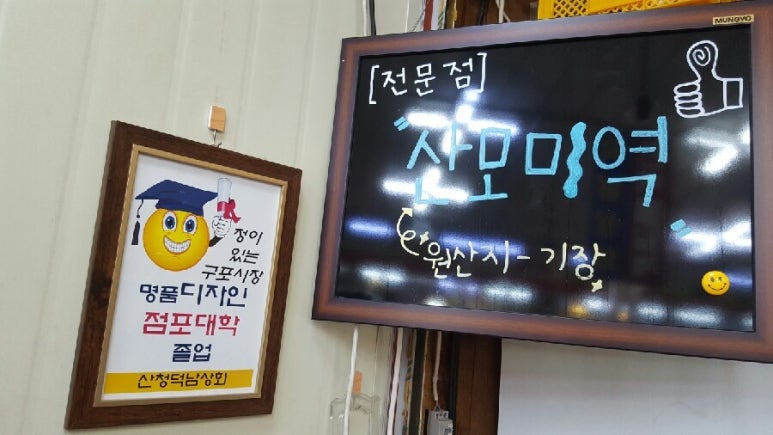 정이
있는
구포시장
명품디자인
점포대학
졸업
산청덕남상회
MUNGYO
[전문점]
"산모미역"
원산지-기장